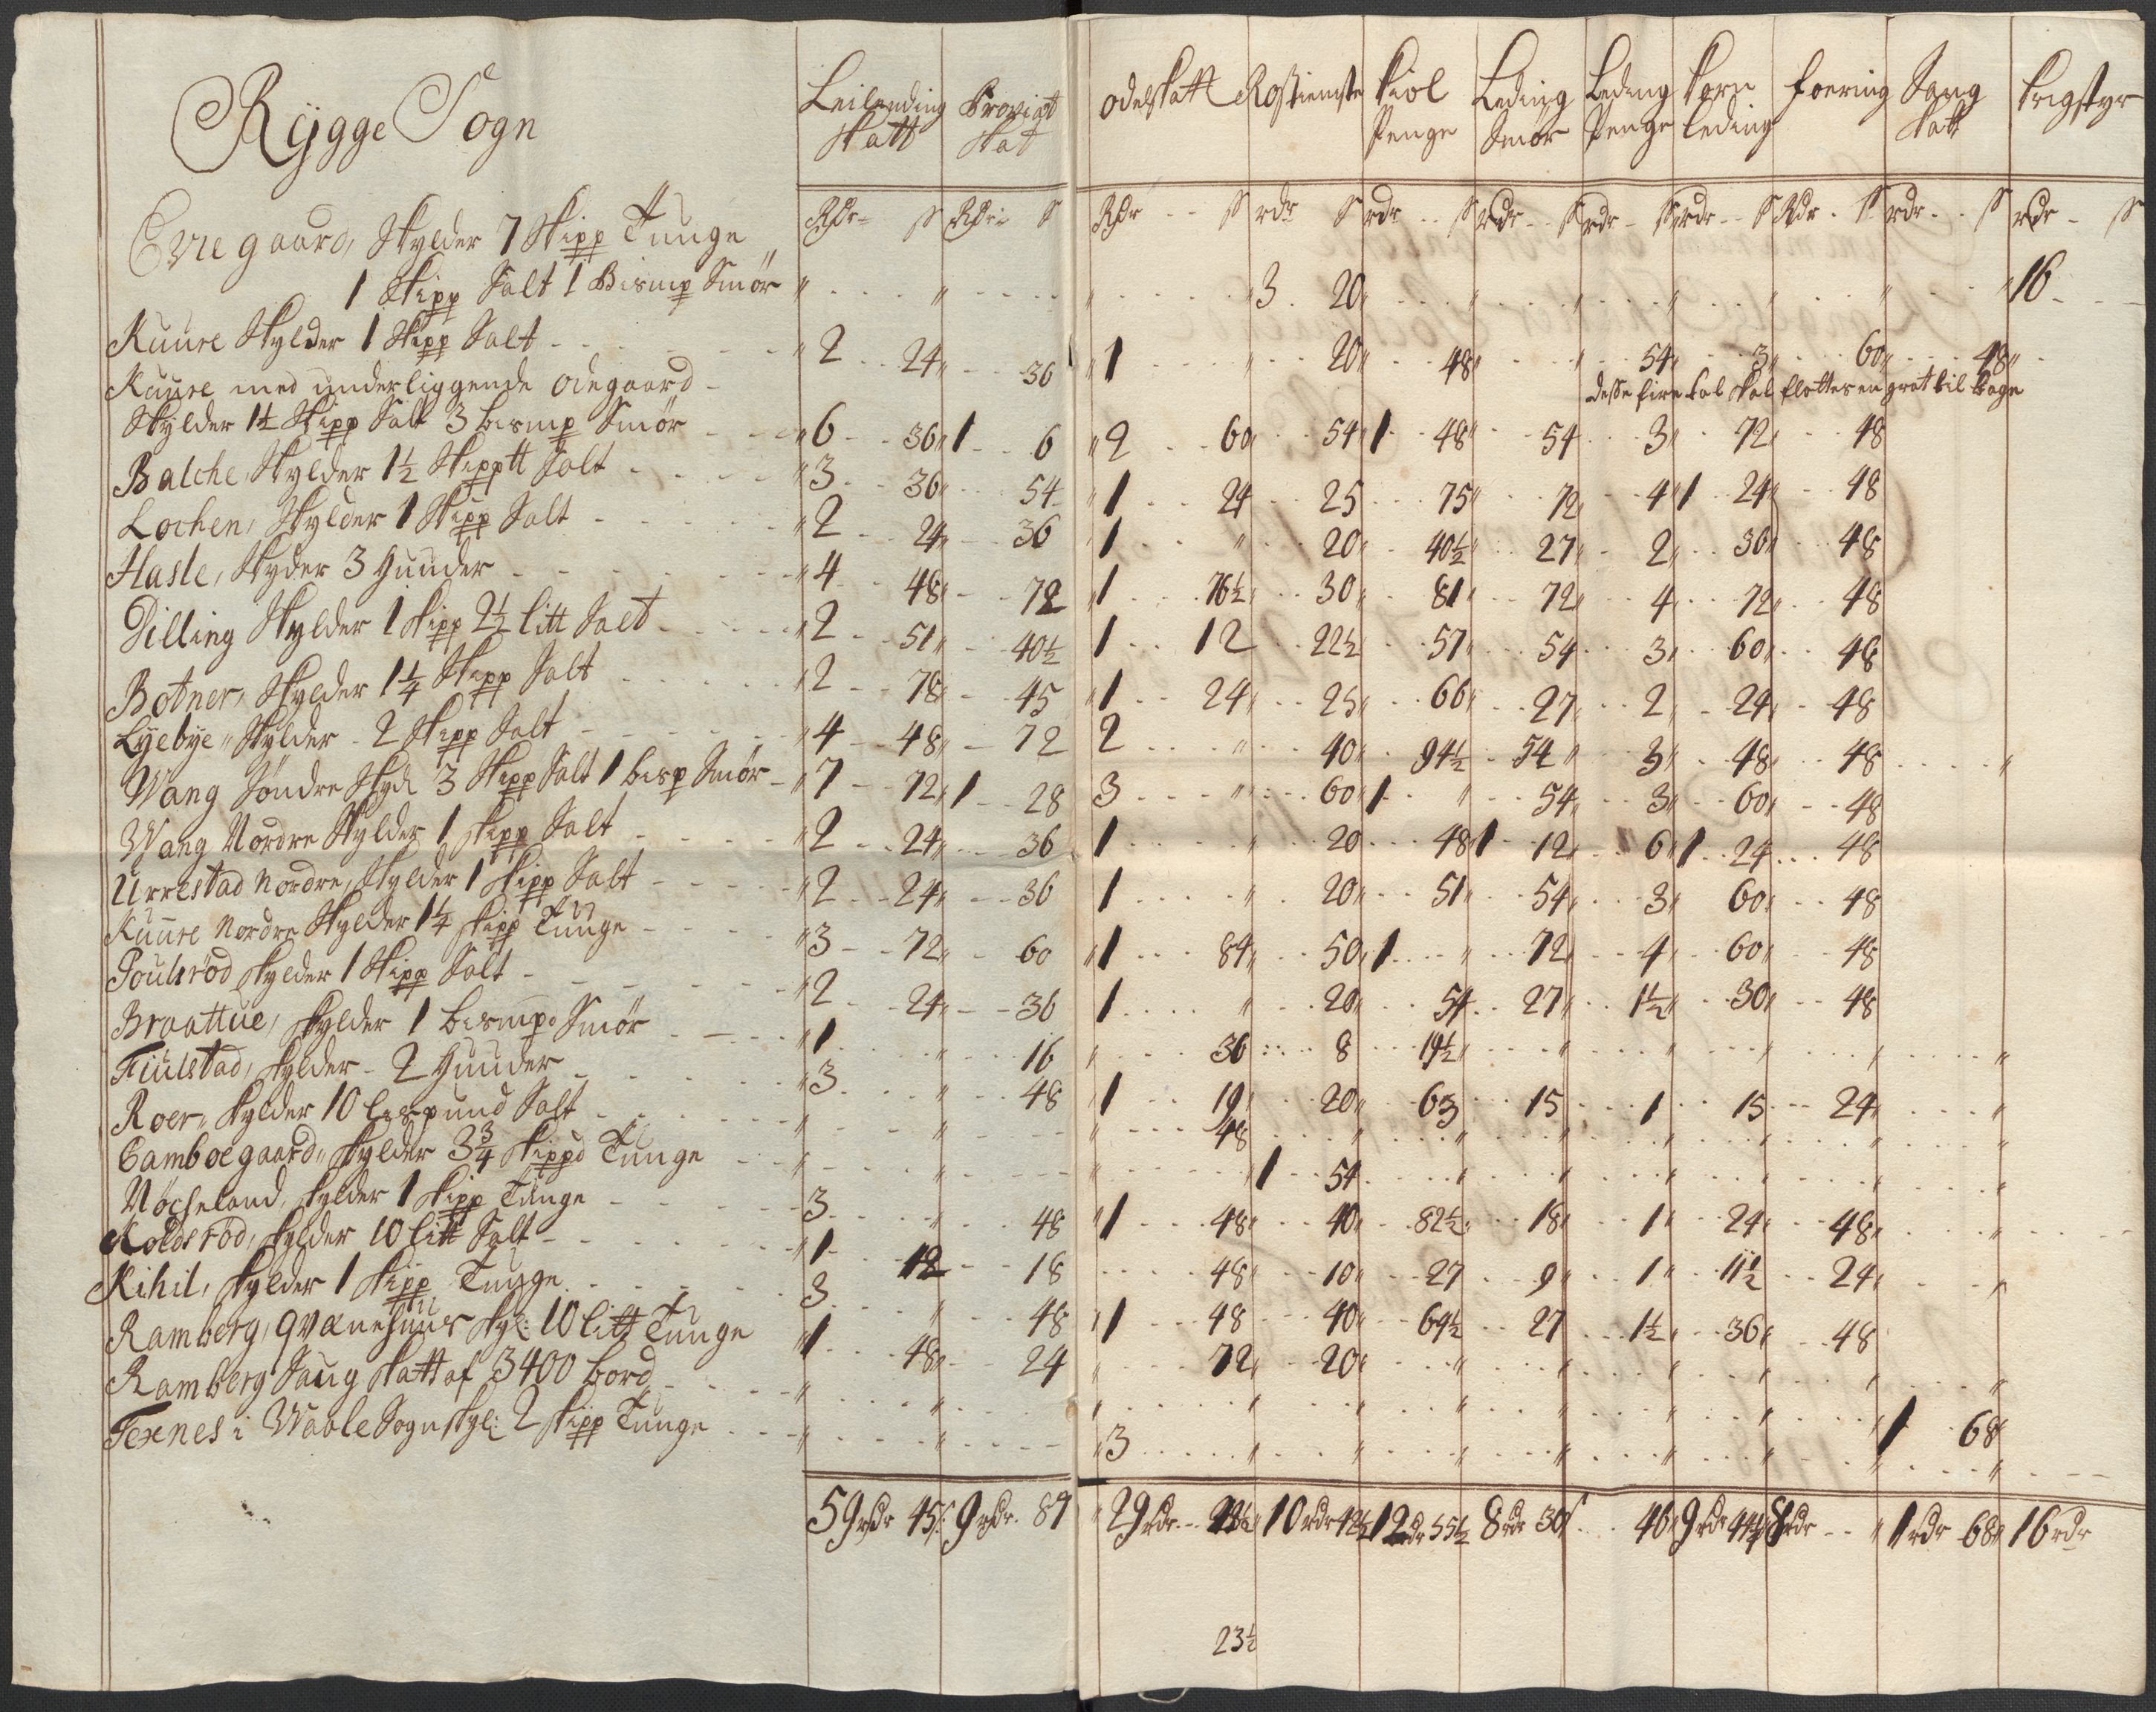 Rÿgge Sogn
Leilending Skatt
Proviat Skat
odelskatt
Rostieniste
Skiol Penge
Leding Smör
Leding Penge
Korn leding
foering
Saug Skatt
krigstyr
Rdr S Rdr S Rdr S rdr S rdr S rdr S rdr S rdr S Rdr S rdr S rdr S
Evie gaard, Skylder 7 Skipp Tunge
1 Skipp Salt 1 Bismp Smör " " " 3 20 " " " " " " 16
Kuure Skylder 1 Skipp Salt " 2 24 " 36 " 1 " 20 " 48 " " 54 " 3 " 60 " 48 "
Kuure med underliggende ödegaard
desse fire tal skal flottes en grat til bage
Skylder 1½ Skipp Salt 3 bismp Smör " 6 36 " 1 6 " 2 60 " 54 " 1 48 " 54 3 " 72 " 48
Balche, Skylder 1½ Skipptt Salt " 3 36 " 54 " 1 24 25 75 " 72 " 4 " 1 24 " 48
Lochen, Skylder 1 Skipp Salt " 2 24 " 36 1 " 20 40½ 27 " 2 " 36 " 48
Hasle, Skyder 3 Huuder " 4 48 " 72 " 1 76½ 30 " 81 " 72 " 4 " 72 " 48
Dilling Skylder 1 Skipp 2½ litt Salt " 2 51 " 40½ 1 12 22½ 57 " 54 3 " 60 " 48
Botner, Skylder 1¼ Skipp Salt " 2 78 " 45 " 1 24 " 25 " 66 " 27 " 2 " 24 " 48
Lÿebÿe " Skylder 2 Skipp Salt " 4 48 " 72 2 " 40 " 94½ 54 " 3 " 48 " 48 "
Wang Söndre Skyd 3 Skipp Salt 1 bisp Smör " 7 72 " 1 28 3 " 60 " 1 " 54 " 3 " 60 " 48
Wang Nordre Skylder 1 Skipp Salt " 2 24 " 36 1 " 20 48 " 1 12 " 6 " 1 24 48
Urrestad Nordre, Skylder 1 Skipp Salt " 2 24 " 36 1 " 20 " 51 " 54 " 3 " 60 " 48
Kuure Nordre Skylder 1¼ Skipp Tunge " 3 72 " 60 " 1 84 " 50 " 1 " 72 " 4 " 60 " 48
Poulsröd Skylder 1 Skipp Salt " 2 24 " 36 1 " 20 " 54 27 " 1½ " 30 " 48
Braattue, Skylder 1 bismp Smör " 1 " 16 " 36 8 19½ " " " " " "
Fiulstad, Skylder 2 Huuder " 3 " 48 " 1 19 " 20 " 63 15 1 15 24 " "
Roer, Skylder 10 lispund Salt " " " 48 " " " " " " "
Camboegaard " Skylder 3¾ Skippd Tunge " " " " 1 54 " " " " " "
Nöcheland, Skylder 1 Skipp Tunge 3 " 48 " 1 48 " 40 82½ " 18 " 1 " 24 " 48 "
Koldsröd, Skylder 10 litt Salt " 1 12 18 48 " 10 " 27 9 " 1 " 11½ 24 " "
Kihil, Skylder 1 Skipp Tunge 3 " 48 " 1 48 40 " 69½ 27 1½ " 36 " 48
Ramberg, qvænehuus Skyl: 10 litt Tunge " 1 48 " 24 " 72 " 20 " " " " " " "
Ramberg Saug Skatt af 3400 bord " " " " " " " " " " 1 68
Texnes i Waale Sogn Skyl: 2 Skipp Tunge " " " 3 " " " " " " " "
59 rdr 45 9 rdr 84 " 29 rdr 10 rdr 42½ 12 rdr 55½ 8 rdr 30 46 9 rdr 44½ 8 rdr " 1 rdr 68 16 rdr
23½